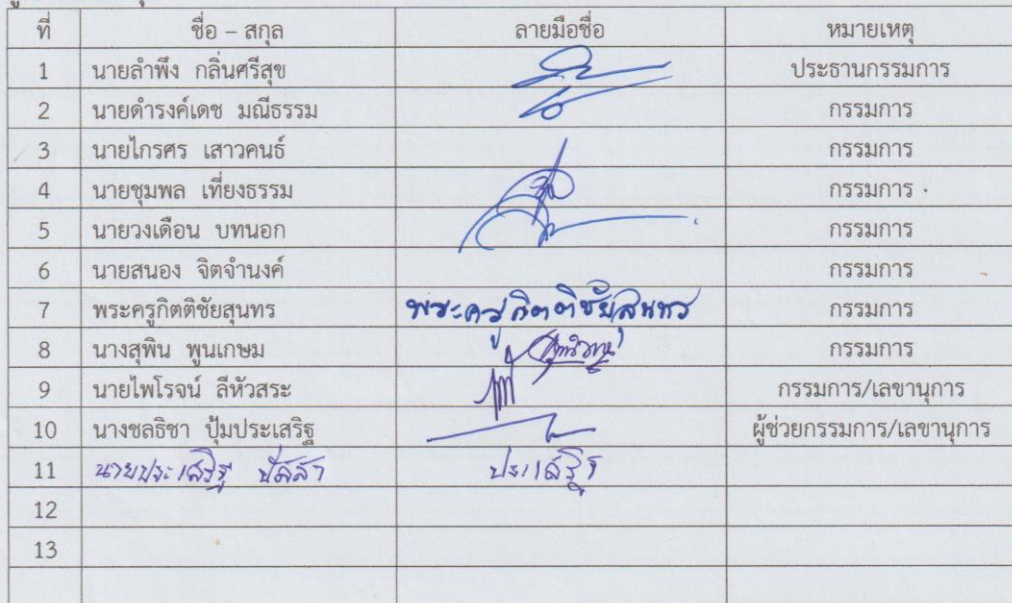 ที่ ชื่อ – สกุล ลายมือชื่อ หมายเหตุ
1 นายลำพึง กลิ่นศรีสุข ประธานกรรมการ
2 นายดำรงค์เดช มณีธรรม กรรมการ
3 นายไกรศร เสาวคนธ์ กรรมการ
4 นายชุมพล เที่ยงธรรม กรรมการ
5 นายวงเดือน บทนอก กรรมการ
6 นายสนอง จิตจำนงค์ กรรมการ
7 พระครูกิตติชัยสุนทร พระครูกิตติชัยสุนทร กรรมการ
8 นางสุพิน พูนเกษม กรรมการ
9 นายไพโรจน์ ลีหัวสระ กรรมการ/เลขานุการ
10 นางชลธิชา ปุ้มประเสริฐ ผู้ช่วยกรรมการ/เลขานุการ
11 นายประเสริฐ ประเสริฐ
12
13